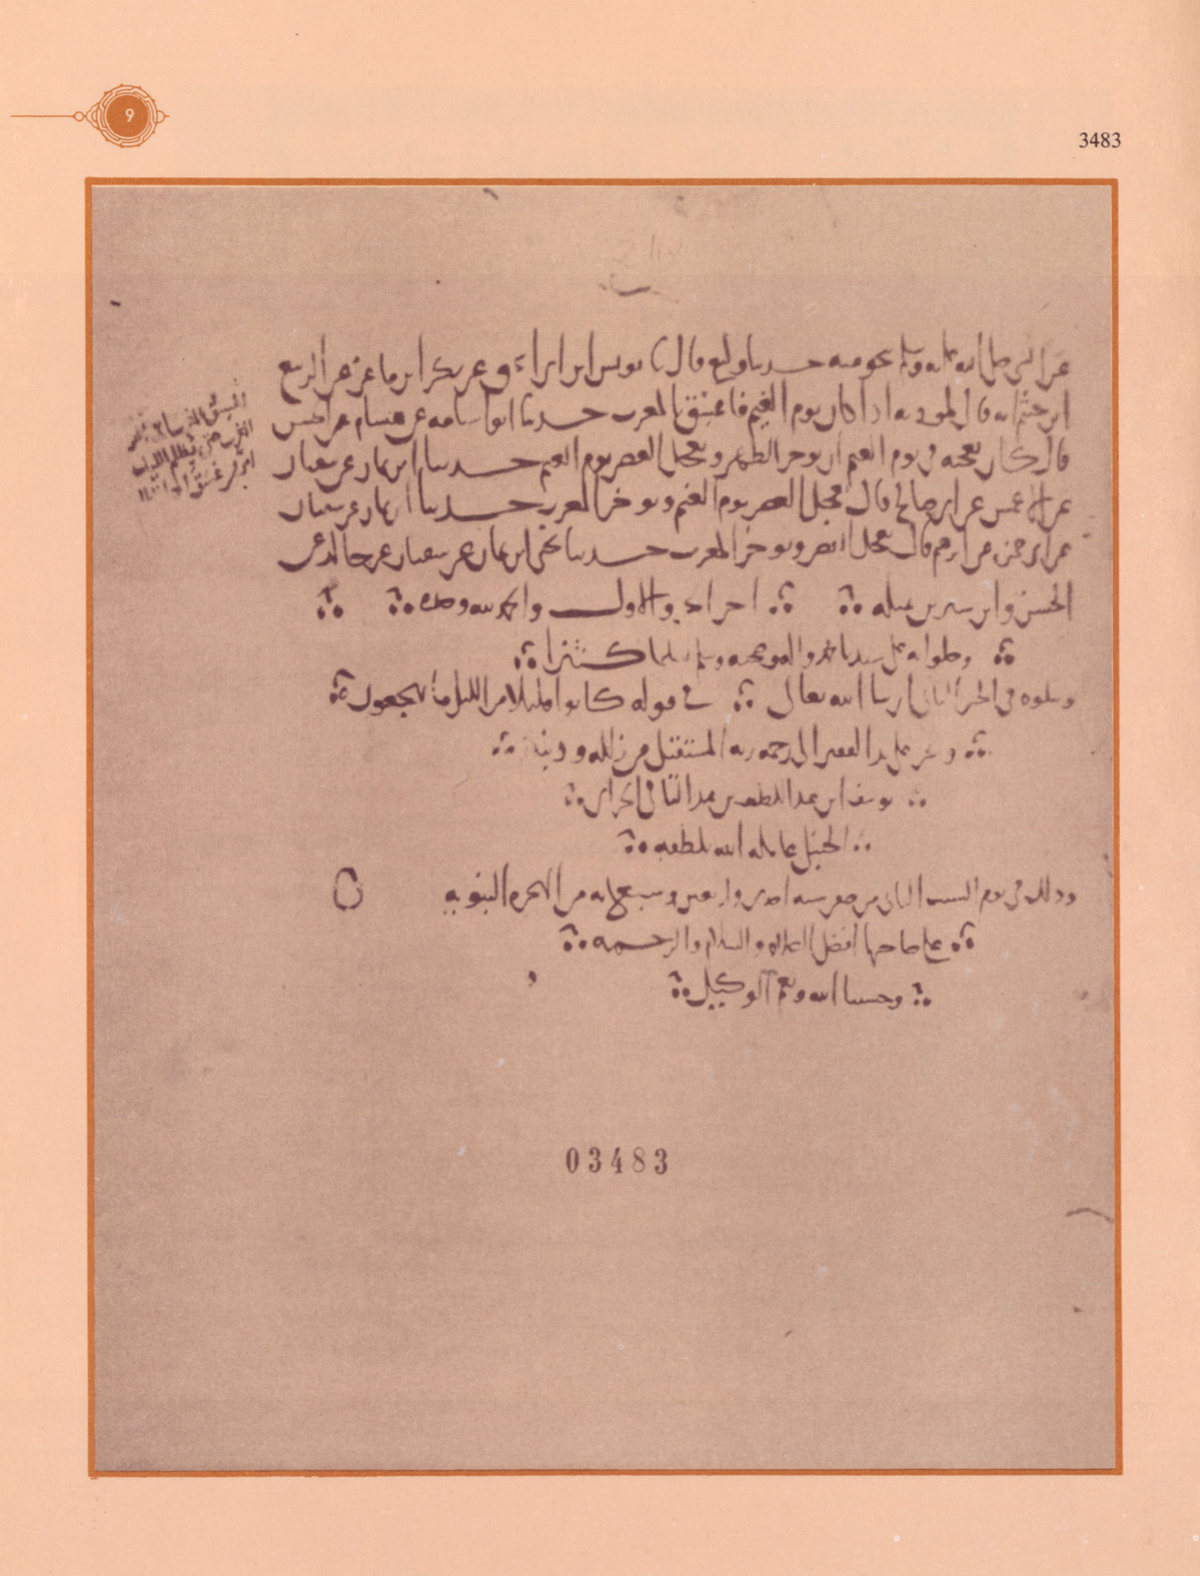 9
3483
عن النبي صلى الله عليه وسلم نحو منه حدثنا وكيع قال نا يونس ابن ابي عن بكر ابن ماعز عن الربيع
ابن خثيم انه قال لمؤذنه اذا كان يوم الغيم فاغسق بالمغرب حدثنا ابو اسامة عن هشام عن الحسن
قال كان يعجبه في يوم الغيم ان يوخر الظهر ويعجل العصر يوم الغيم حدثنا ابن يمان عن سفيان
عن الاعمش عن ابي صالح قال يعجل العصر يوم الغيم ويوخر المغرب حدثنا ابن يمان عن سفيان
عن ابي حمزة عن ابرهيم قال يعجل العصر ويوخر المغرب حدثنا يحيى ابن يمان عن سفيان عن خالد عن
الحسن وابن سيرين مثله اخر الجزو الاول والحمد لله وحده
وصلواته على سيدنا محمد واله وصحبه وسلم تسليما كثيرا
ويتلوه في الجزء الثاني ان شا الله تعالى في قوله كانوا قليلا من الليل ما يهجعون
وعلى يد الفقير الى رحمة ربه المستقيل من زلله وذنبه
يوسف ابن عبد اللطيف بن عبد الباقي الحراني
الحنبلي عامله الله بلطفه
وذلك في يوم السبت الثاني من صفر سنة احدى واربعين وسبعمايه من الهجره النبويه
على صاحبها افضل الصلاة والسلام والرحمه
وحسبنا الله ونعم الوكيل
03483